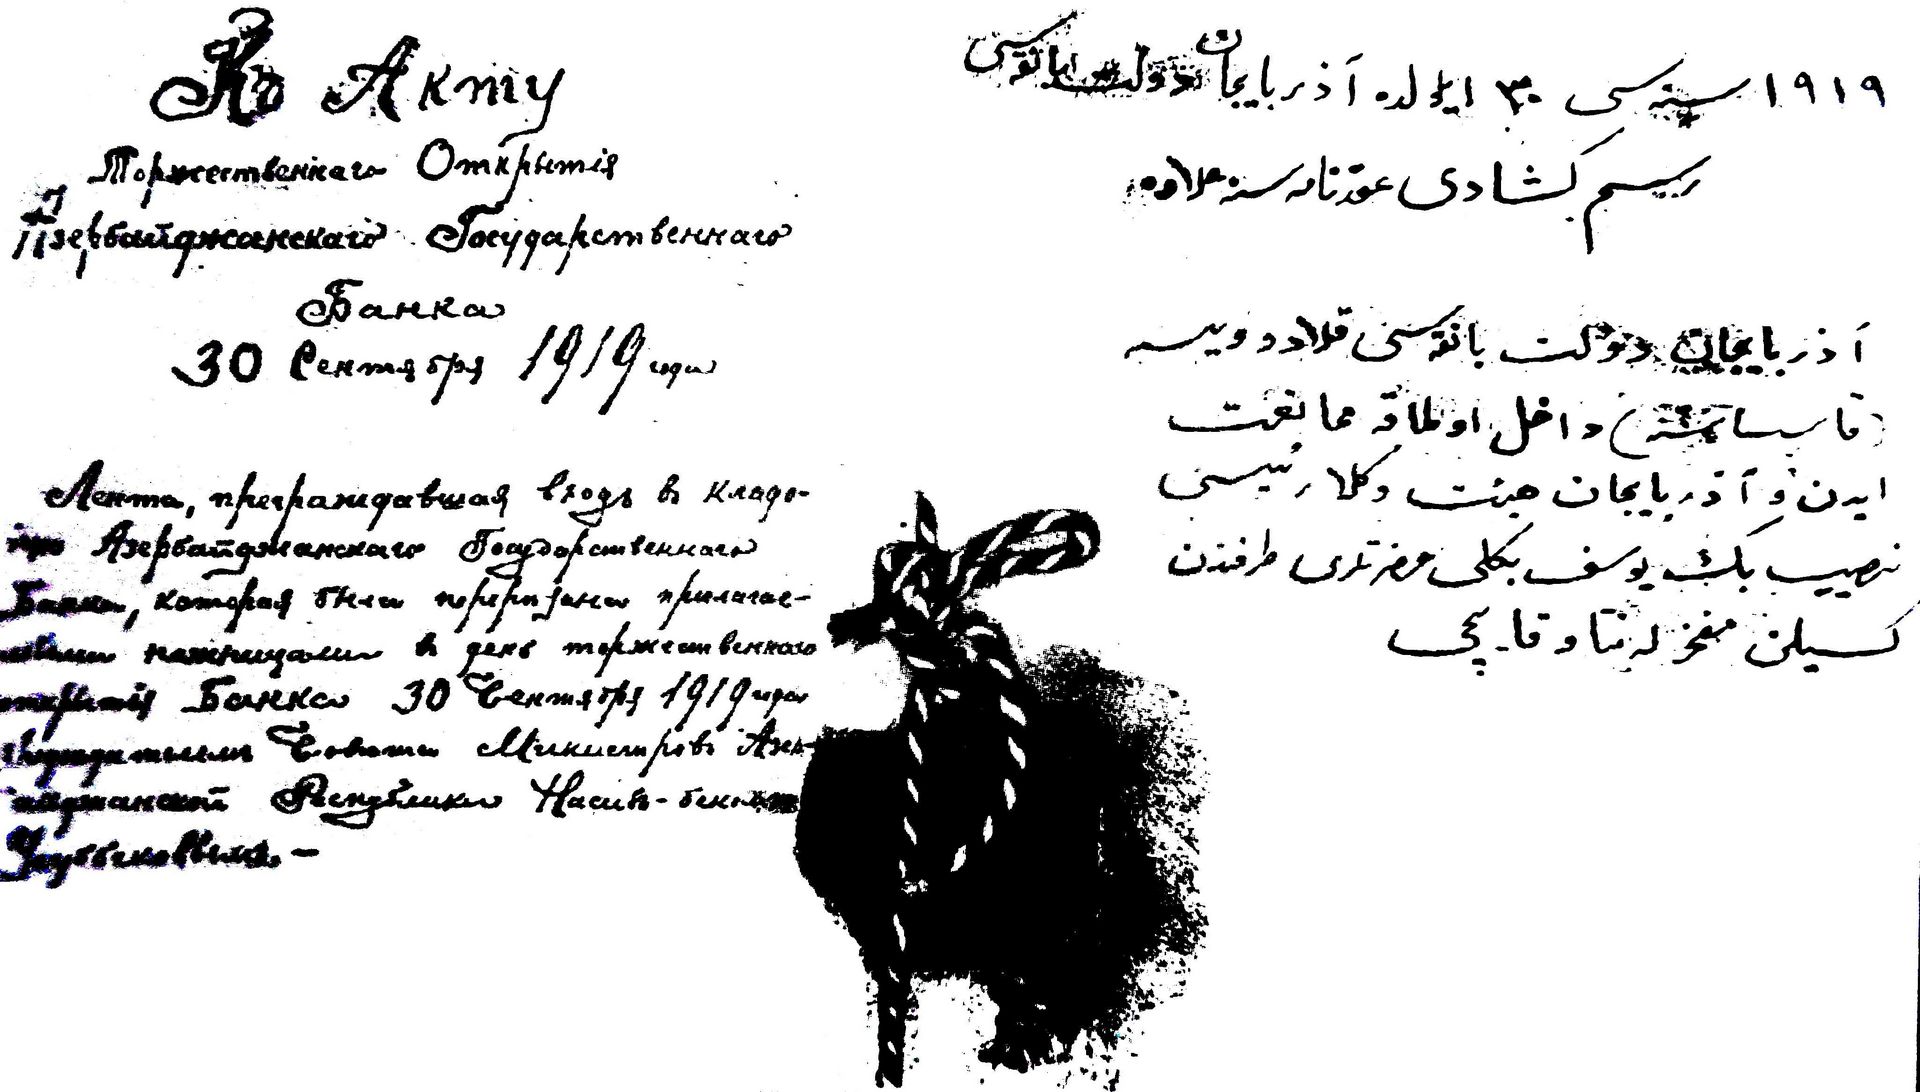 Къ Акту
Торжественнаго Открытія
Азербайджанскаго Государственнаго
Банка
30 Сентября 1919 года
Лента, преграждавшая входъ въ кладо-
вую Азербайджанскаго Государственнаго
Банка, которая была перерѣзана прилагае-
мыми ножницами въ день торжественнаго
открытія Банка 30 Сентября 1919 года
Предсѣдателемъ Совѣта Министровъ Азер-
байджанской Республики Насиб-беком
Усуббековымъ. —
١٩١٩ سنه‌سی ٣٠ ایلولده آذربایجان دولت بانقه‌سی
رسم كشادی عقدنامه‌سنه علاوه
آذربایجان دولت بانقه‌سی قلادوویسه
داخل اولماقه ممانعت
ایدن و آذربایجان هیئت وكلا رئیسی
نصیب بك یوسف بكلی حضرتلری طرفندن
كسیلن